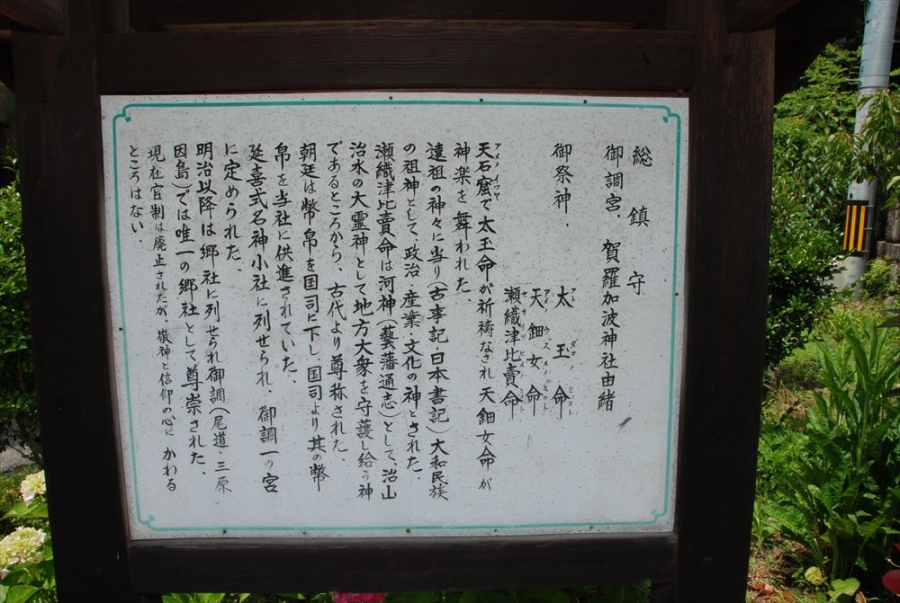 総鎮守
御調宮、賀羅加波神社由緒
御祭神、太玉命
天鈿女命
瀬織津比賣命
天石窟で太玉命が祈祷なされ天鈿女命が
神楽を舞われた、
遠祖の神々に当り(古事記・日本書記)大和民族
の祖神として、政治・産業・文化の神とされた、
瀬織津比賣命は河神(藝藩通志)として、治山
治水の大霊神として地方大衆を守護し給う神
であるところから、古代より尊称された、
朝廷は幣帛を国司に下し、国司より其の幣
帛を当社に供進されていた、
延喜式名神小社に列せられ、御調一の宮
に定められた、
明治以降は郷社に列せられ御調(尾道・三原・
因島)では唯一の郷社として尊崇された、
現在官制は廃止されたが、敬神と信仰の心にかわる
ところはない、